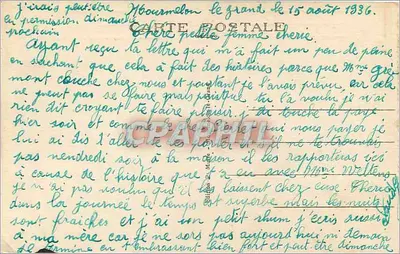 j'irais peut être
en permission dimanche
prochain
Mourmelon le grand le 15 août 1936.
CARTE POSTALE
Chère petite femme chérie
Ayant reçu la lettre qui m'a fait un peu de peine
en sachant que cela a fait des histoires parce que Mme
mont couche chez nous et pourtant je l'avais prévu, car cela
ne peut pas se faire mais puisque tu l'a voulu je n'ai
rien dit croyant te faire plaisir. je touche la paye
hier soir et comme qui nous paye je
lui ai dis d'aller si je ne te trouvais
pas vendredi soir à la maison il les rapportera ici
à cause de l'histoire que y a eu avec Mme
je n'ai pas voulu qu'il les laissent chez eux. Chérie
dans la journée le temps est superbe mais les nuits
sont fraîches et j'ai un petit rhum j'écris aussi
à ma mère car je ne sors pas aujourd'hui ni demain
Je termine en t'embrassant bien fort et peut être dimanche
CPAPHIL